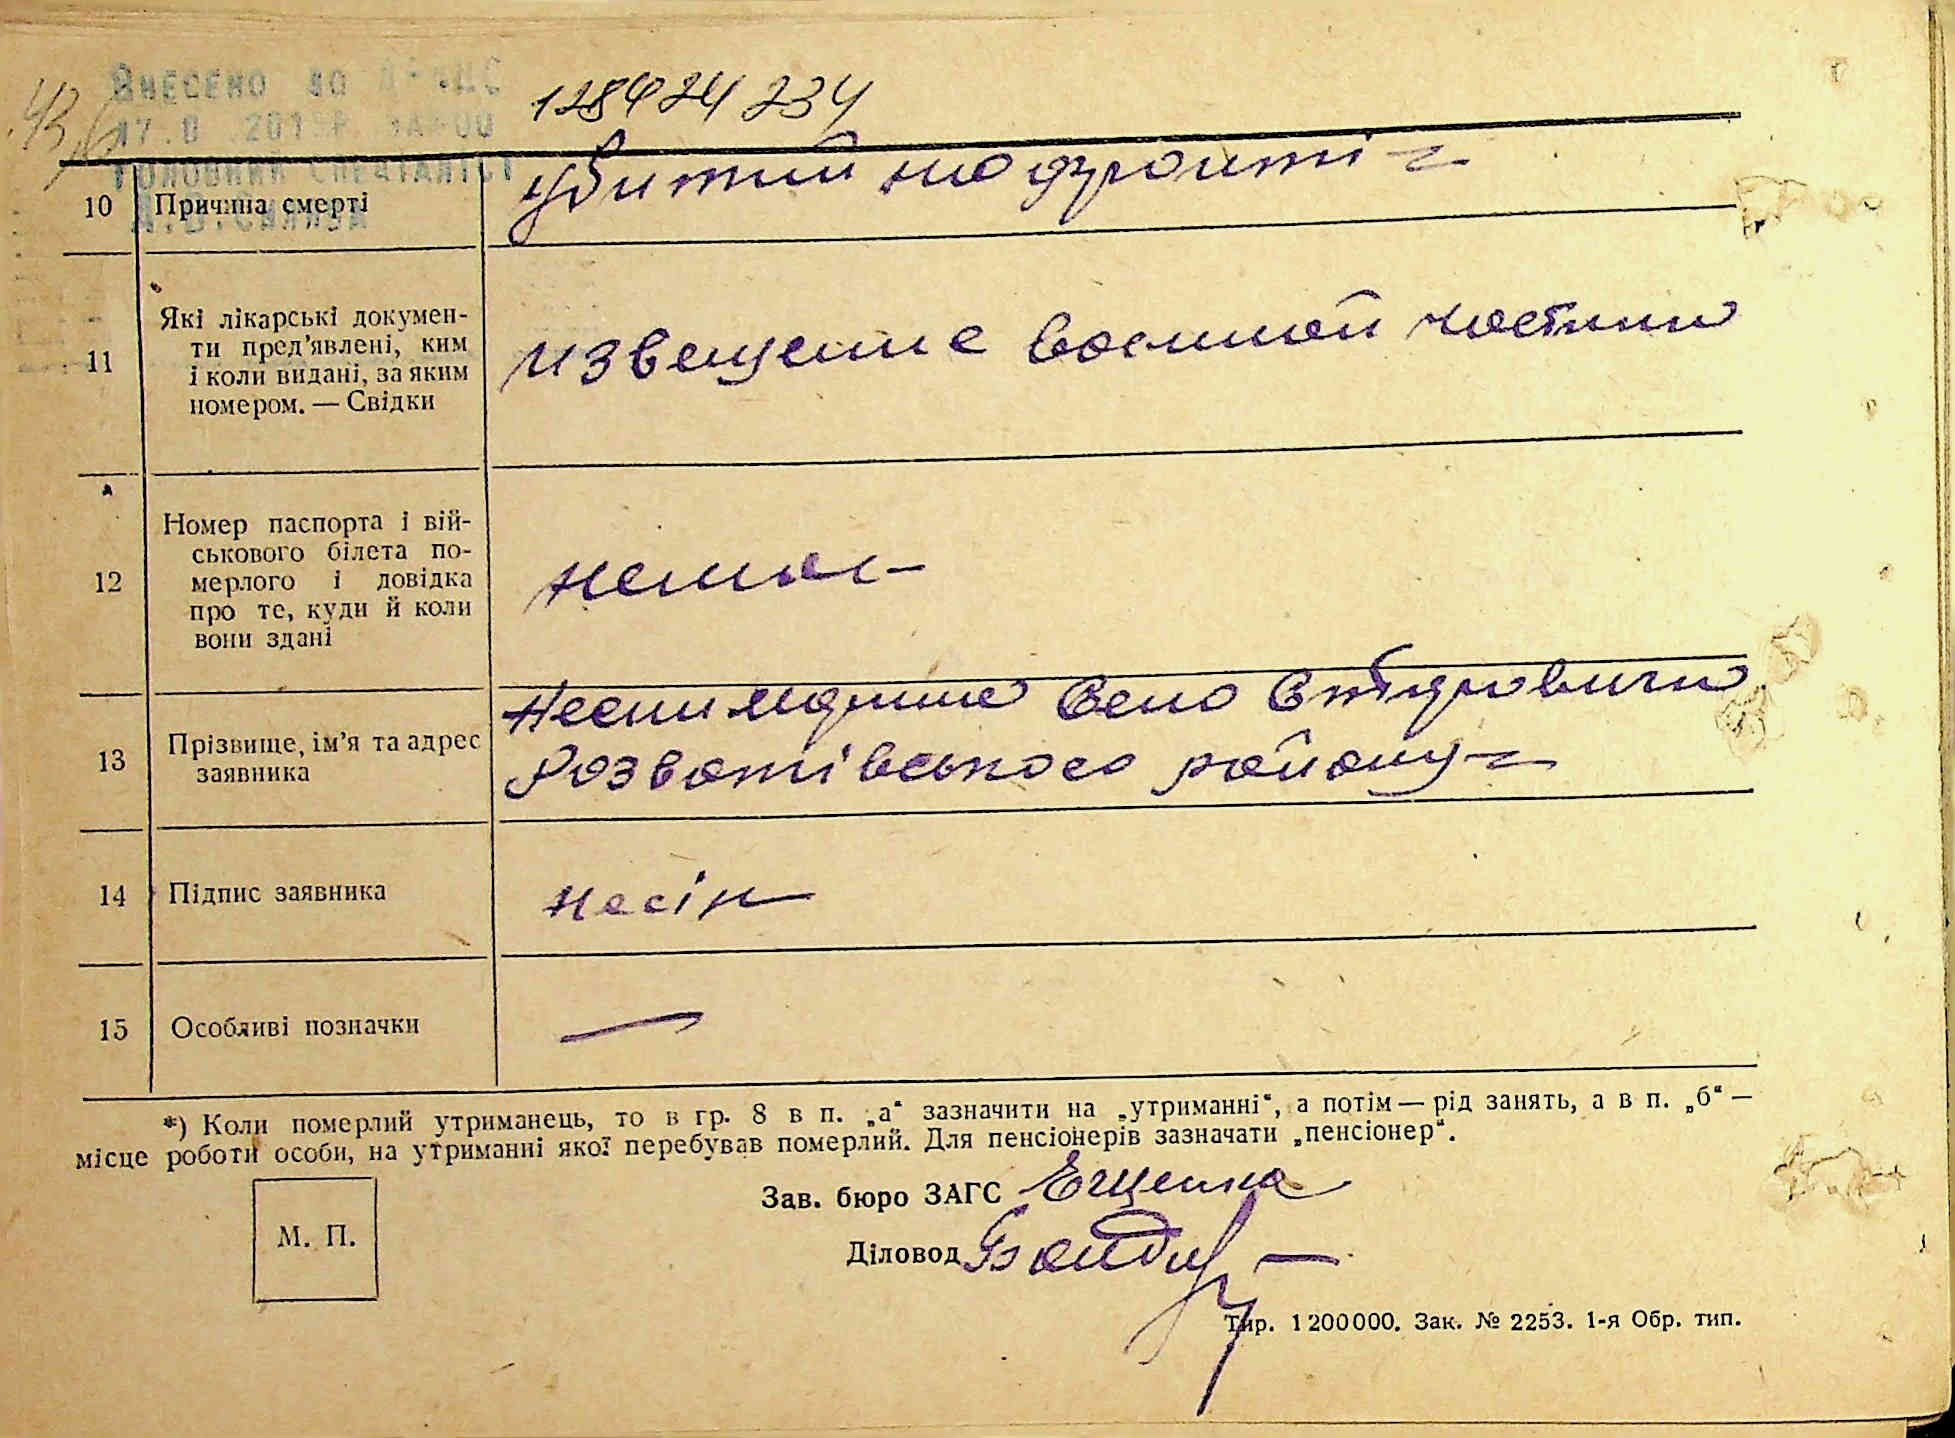 Внесено до
128424234
10 Причина смерті убитий на фронті
11 Які лікарські докумен-
ти пред'явлені, ким
і коли видані, за яким
номером. — Свідки
извещение военной частини
12 Номер паспорта і вій-
ськового білета по-
мерлого і довідка
про те, куди й коли
вони здані
немає
13 Прізвище, ім'я та адрес
заявника
село
Розватівського району
14 Підпис заявника
15 Особливі позначки —
*) Коли померлий утриманець, то в гр. 8 в п. „а“ зазначити на „утриманні“, а потім — рід занять, а в п. „б“ —
місце роботи особи, на утриманні якої перебував померлий. Для пенсіонерів зазначати „пенсіонер“.
М. П.
Зав. бюро ЗАГС
Діловод
Тир. 1200000. Зак. № 2253. 1-я Обр. тип.